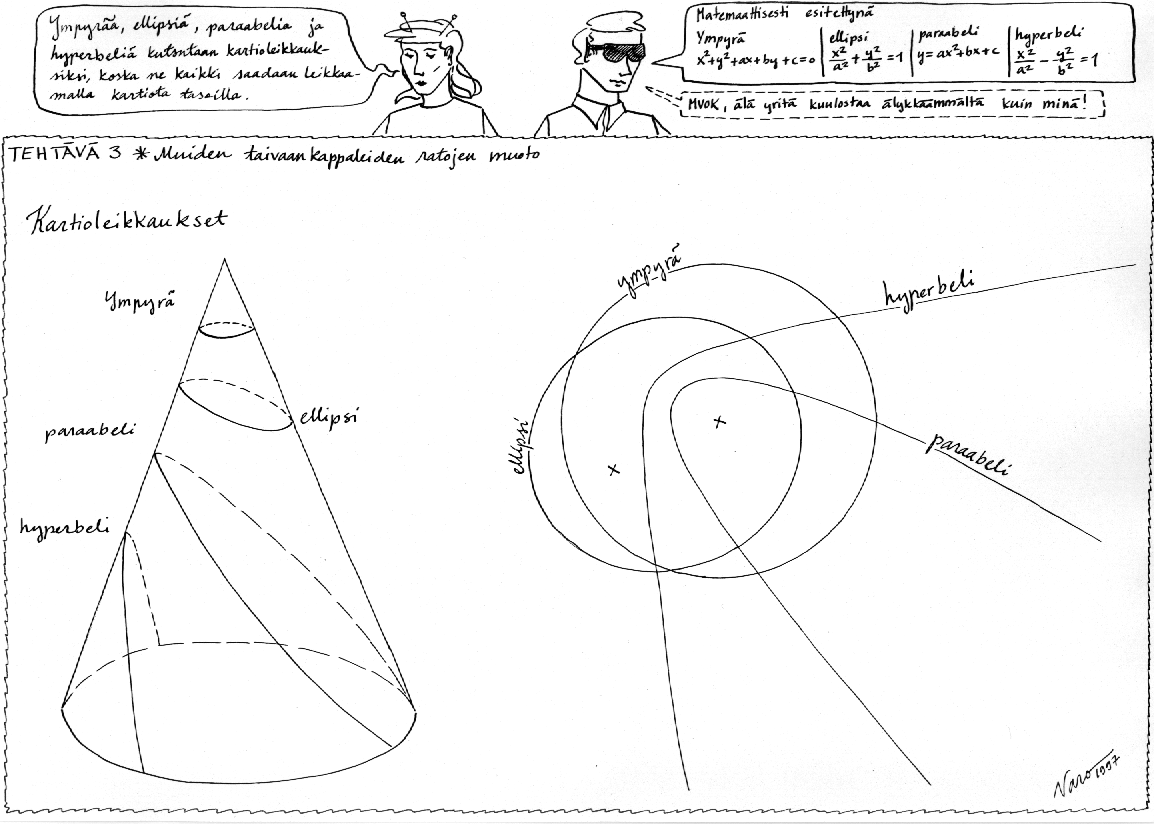 Ympyrää, ellipsiä, paraabelia ja
hyperbeliä kutsutaan kartioleikkauk-
siksi, koska ne kaikki saadaan leikkaa-
malla kartiota tasoilla.
Matemaattisesti esitettynä
Ympyrä
x²+y²+ax+by+c=0
ellipsi
x²/a² + y²/b² = 1
paraabeli
y=ax²+bx+c
hyperbeli
x²/a² - y²/b² = 1
MVOK, älä yritä kuulostaa älykkäämmältä kuin minä!
TEHTÄVÄ 3 * Muiden taivaankappaleiden ratojen muoto
Kartioleikkaukset
Ympyrä
ellipsi
paraabeli
hyperbeli
ympyrä
hyperbeli
ellipsi
paraabeli
Naro 1997